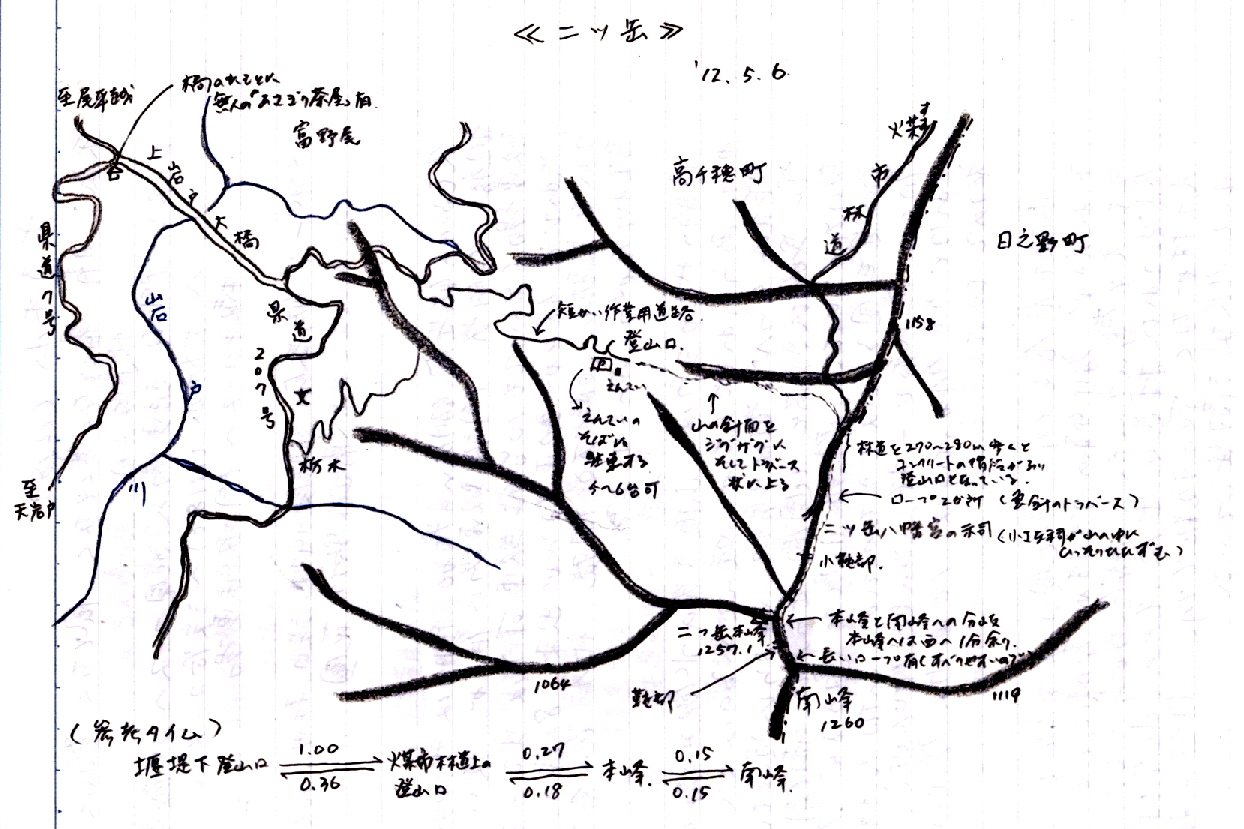 ≪ 二ッ岳 ≫
'12. 5. 6
至尾平越
無人の"あさぎり茶屋"有
富野尾
上岩戸大橋
高千穂町
煤市林道
日之影町
県道7号
岩戸川
県道207号
文
栃木
至
天岩戸
短かい作業用道路
登山口
P
えんてい
えんていの
そばに
駐車する
4〜6台可
山の斜面を
ジグザグに
そしてトラバース
状に上る
1158
林道を270〜280m歩くと
コンクリートの階段があり
登山口となっている。
ロープ2か所
二ッ岳八幡宮の
小鞍部.
二ッ岳本峰
1257.1
本峰と南峰への分岐
本峰へは西へ1分余り.
長いロープ有(すべりやすいので)
鞍部
南峰
1260
1064
1119
(参考タイム)
堰堤下登山口 1.00 0.36 煤市林道上の登山口 0.27 0.18 本峰. 0.15 0.15 南峰.